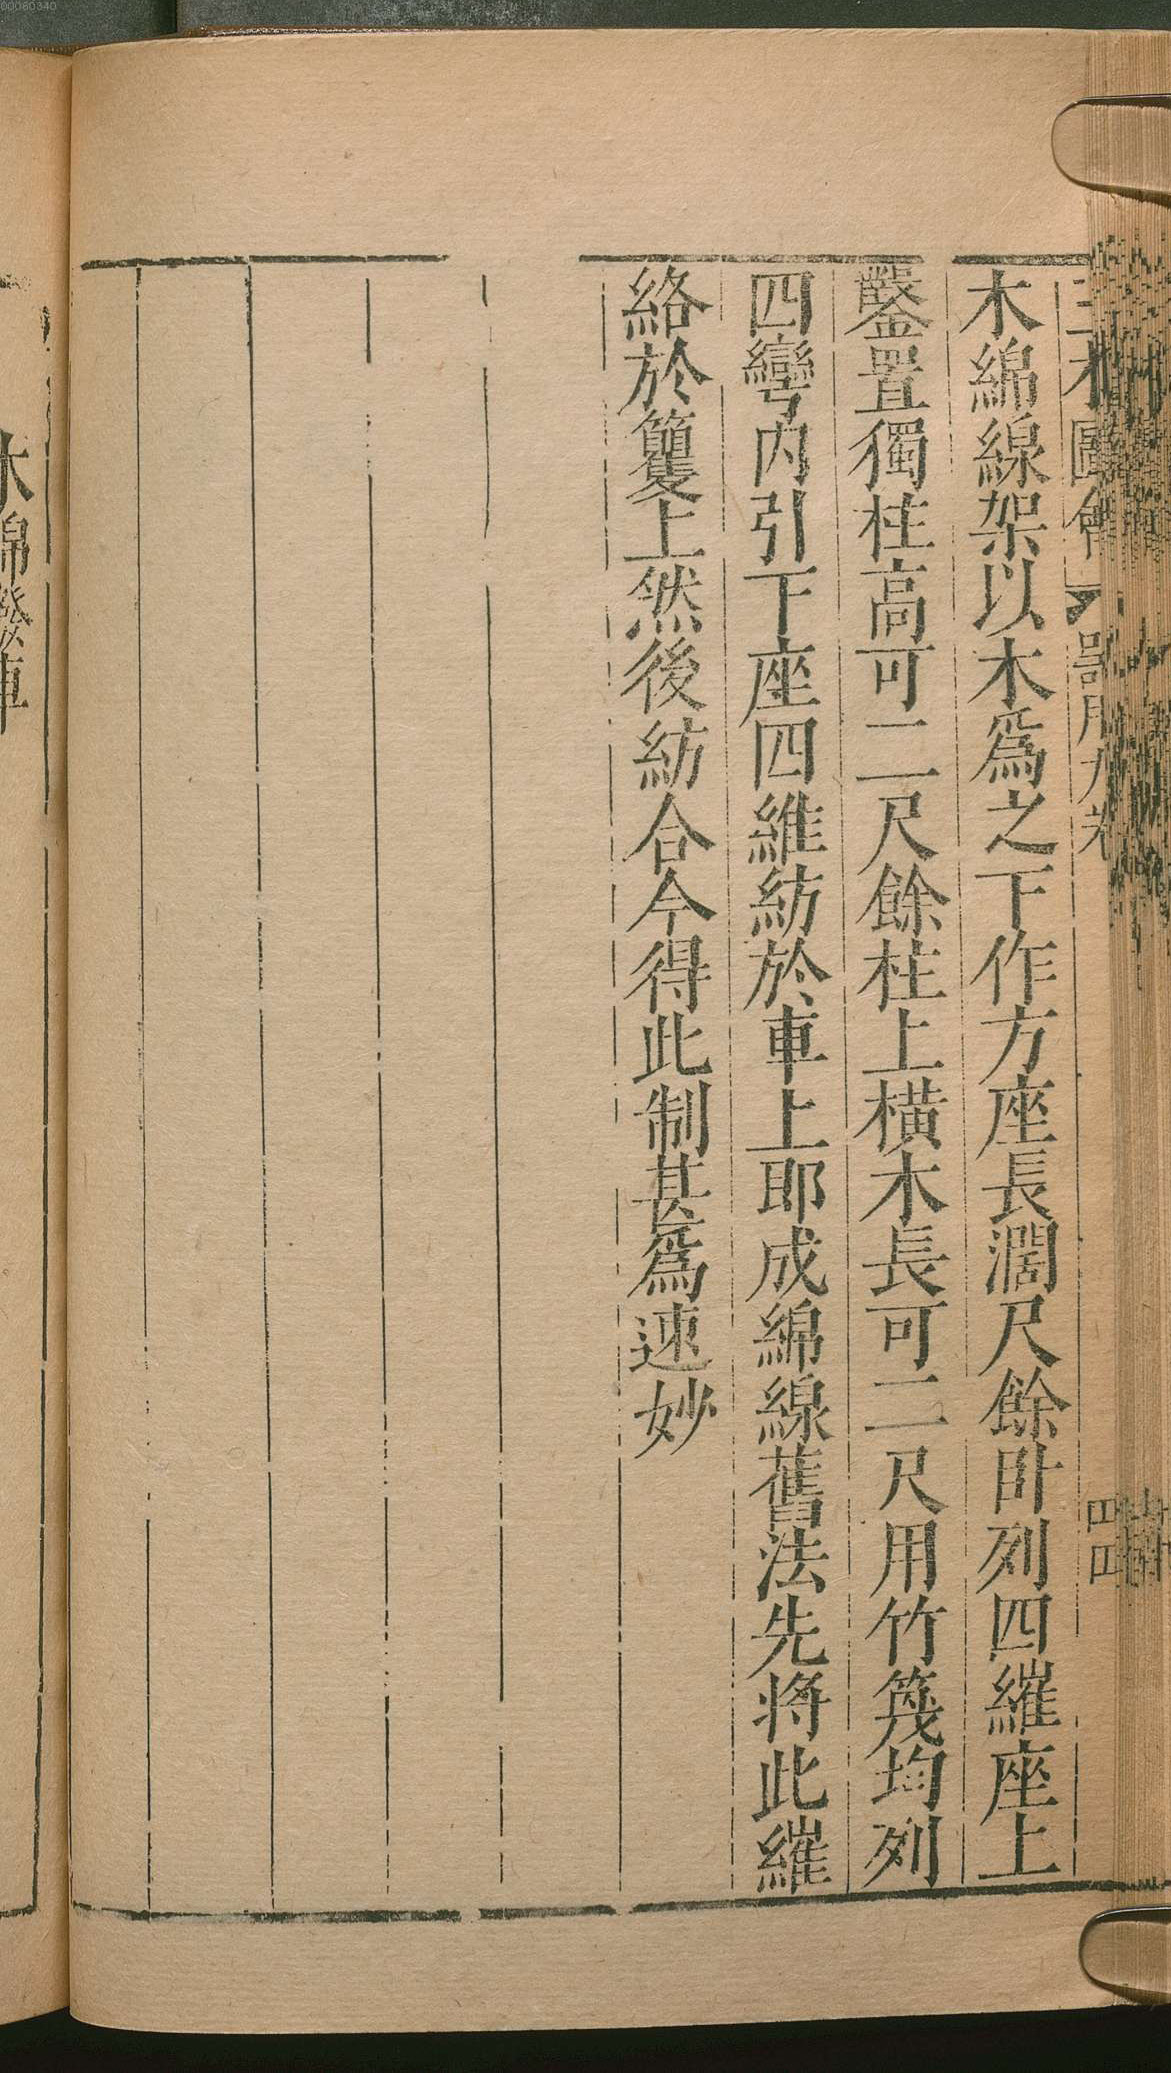 木綿線架以木爲之下作方座長濶尺餘臥列四維座上
鑿置獨柱高可二尺餘柱上橫木長可二尺用竹篾均列
四彎內引下座四維紡於車上即成綿線舊法先將此維
絡於籰上然後紡合今得此制甚爲速妙
器用九卷
四四
木綿撥車
00060340